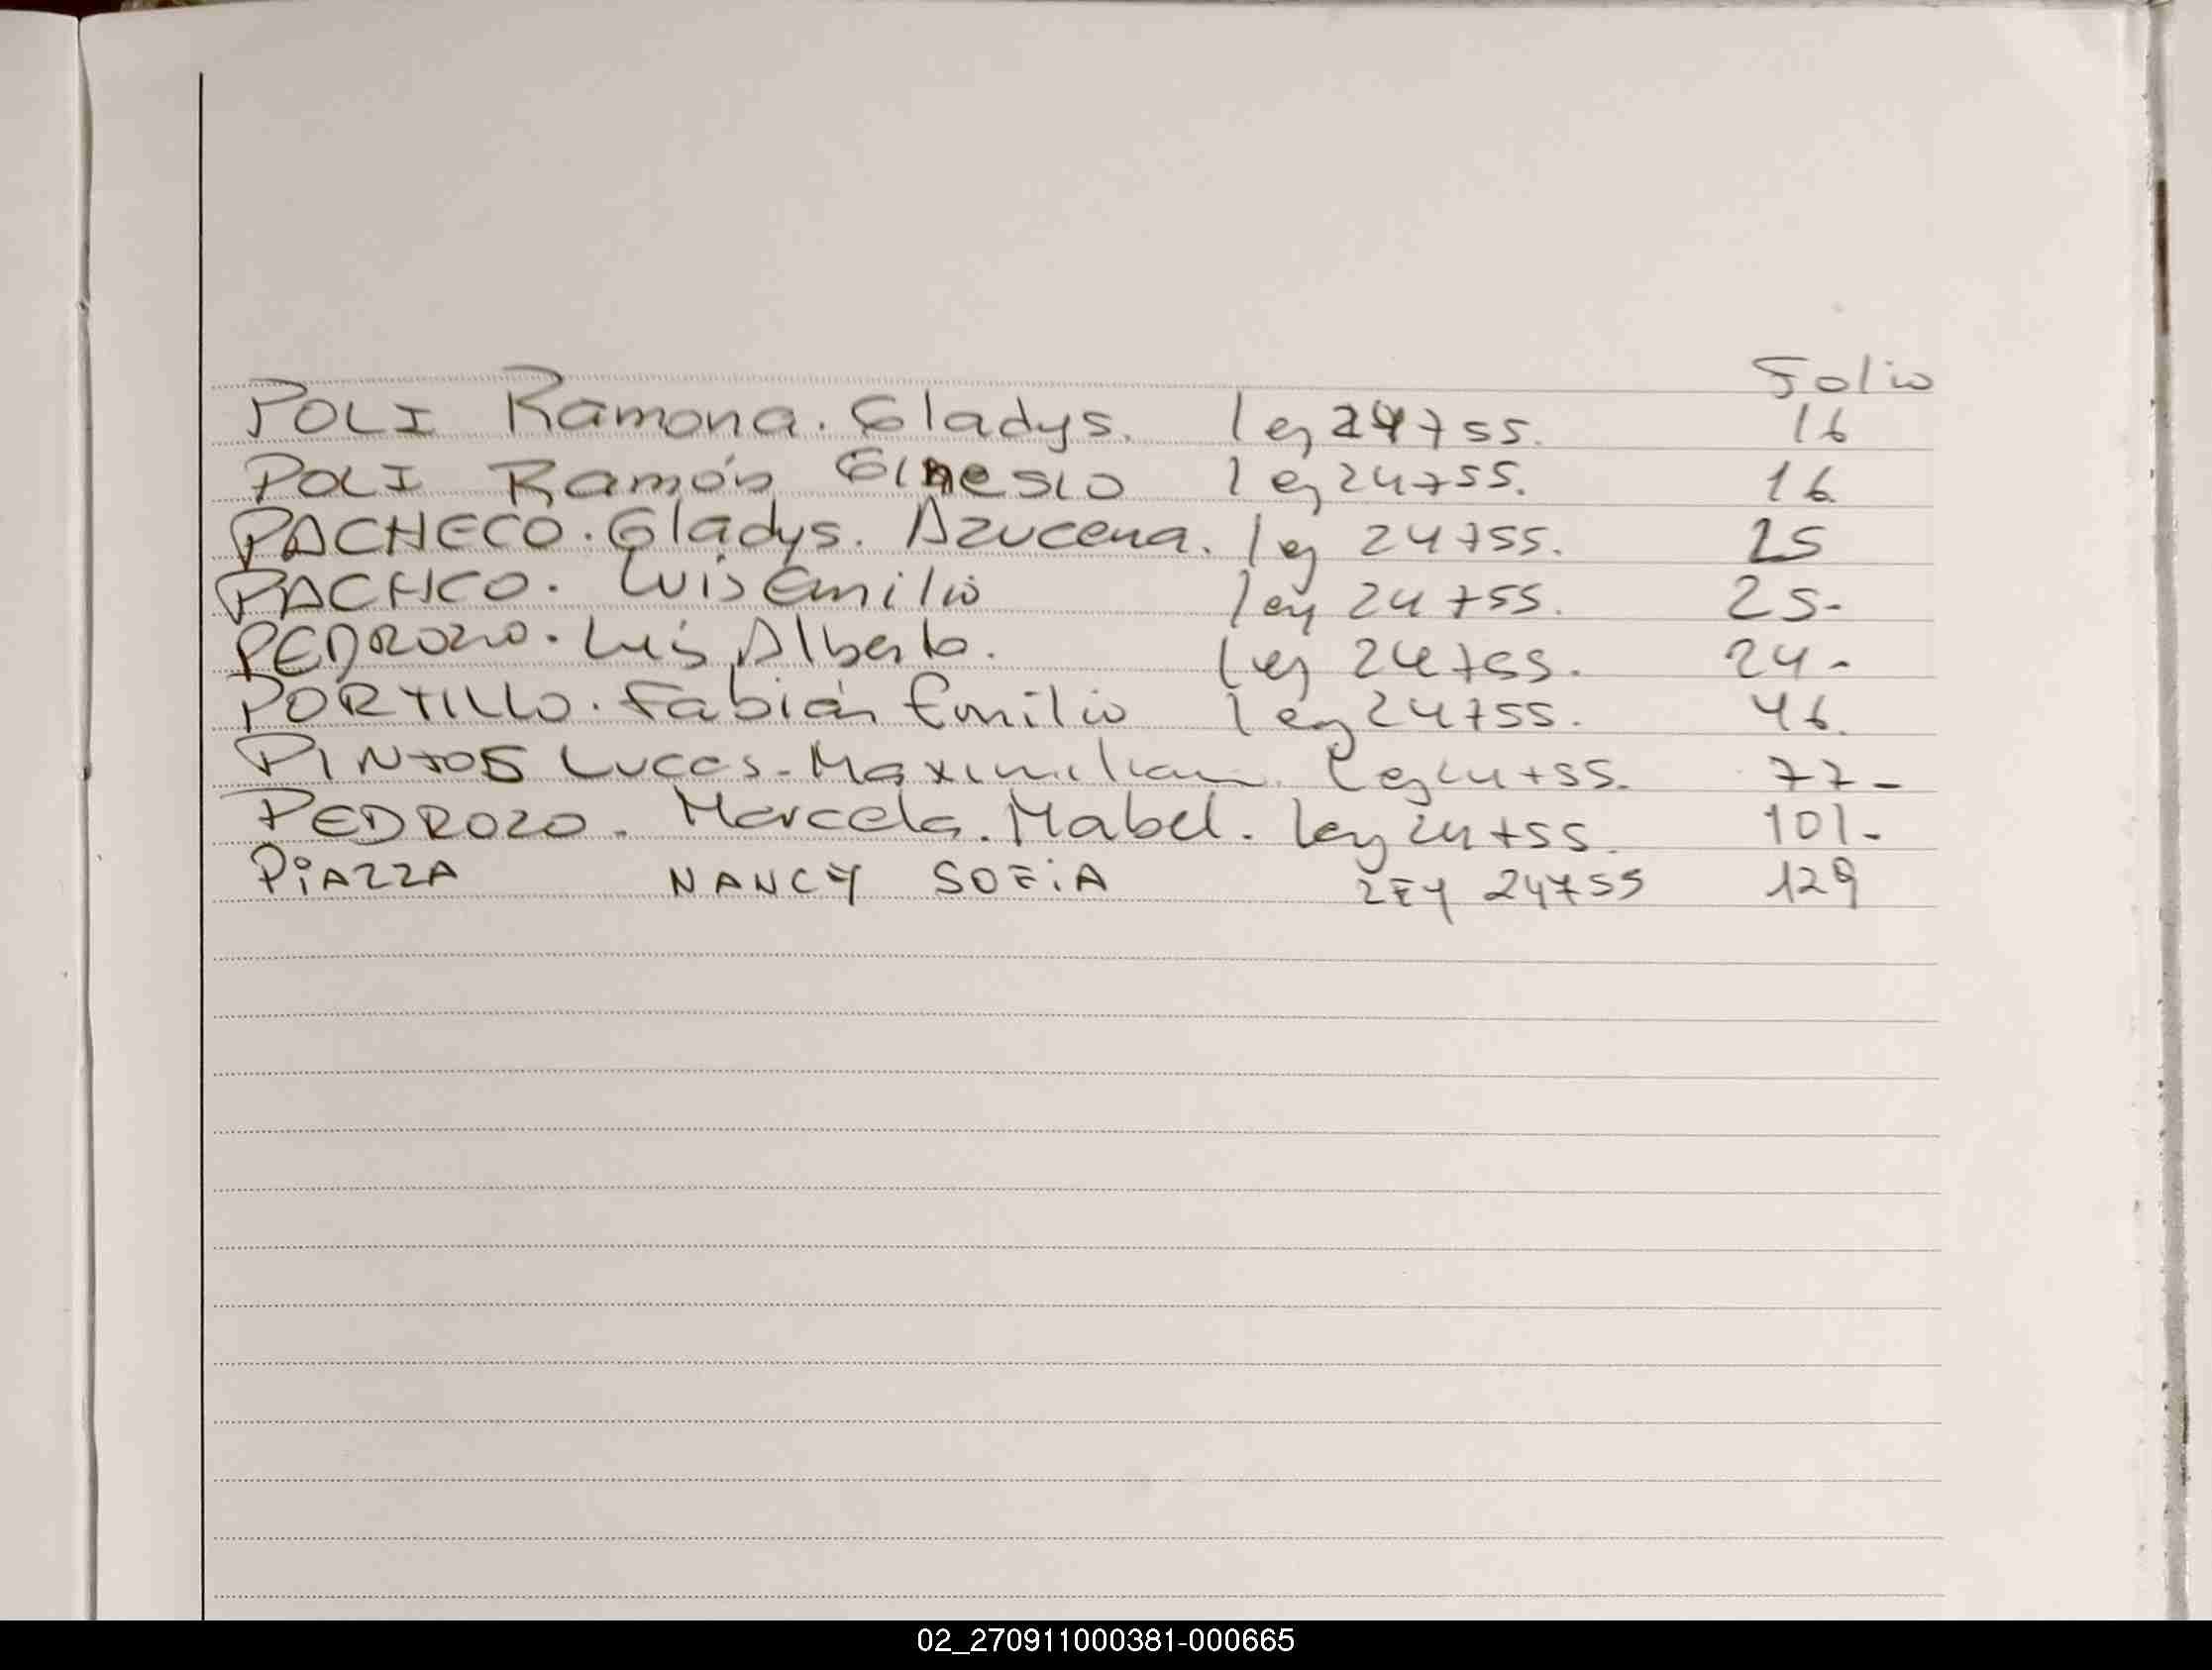 Folio
POLI Ramona. Gladys. ley 24755. 16
POLI Ramón Ginesio ley 24755. 16
PACHECO. Gladys. Azucena. ley 24755. 25
PACHCO. Luis Emilio ley 24755. 25-
PEDROZO. Luis Alberto. ley 24755. 24-
PORTILLO. Fabián Emilio ley 24755. 46.
PINTOS Lucas-Maximiliano. ley 24755. 77-
PEDROZO. Marcela. Mabel. ley 24755. 101-
PiAZZA NANCY SOFiA LEY 24755 129
02_270911000381-000665